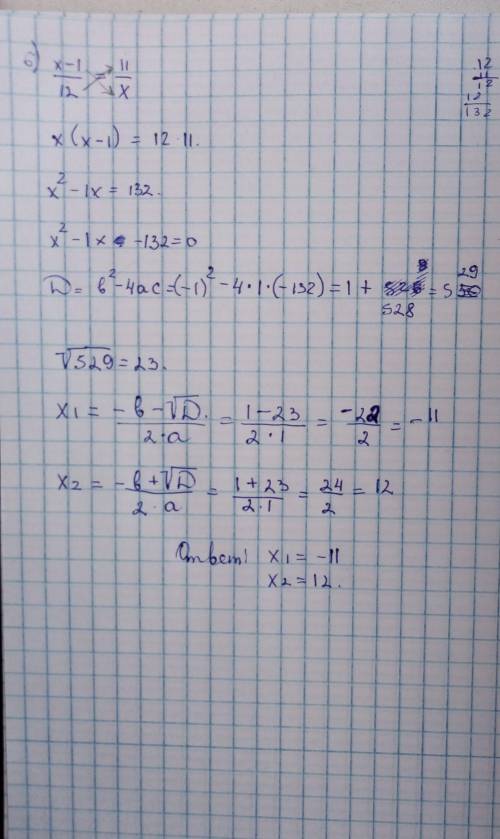 б) x-1/12 = 11/x
12
11
12
12
132
x(x-1) = 12·11.
x² - 1x = 132.
x² - 1x - 132 = 0
D = b² - 4ac = (-1)² - 4·1·(-132) = 1 + 528 = 529
√529 = 23.
x1 = -b-√D./2·a = 1-23/2·1 = -22/2 = -11
x2 = -b+√D/2·a = 1+23/2·1 = 24/2 = 12
Ответ: x1 = -11
x2 = 12.